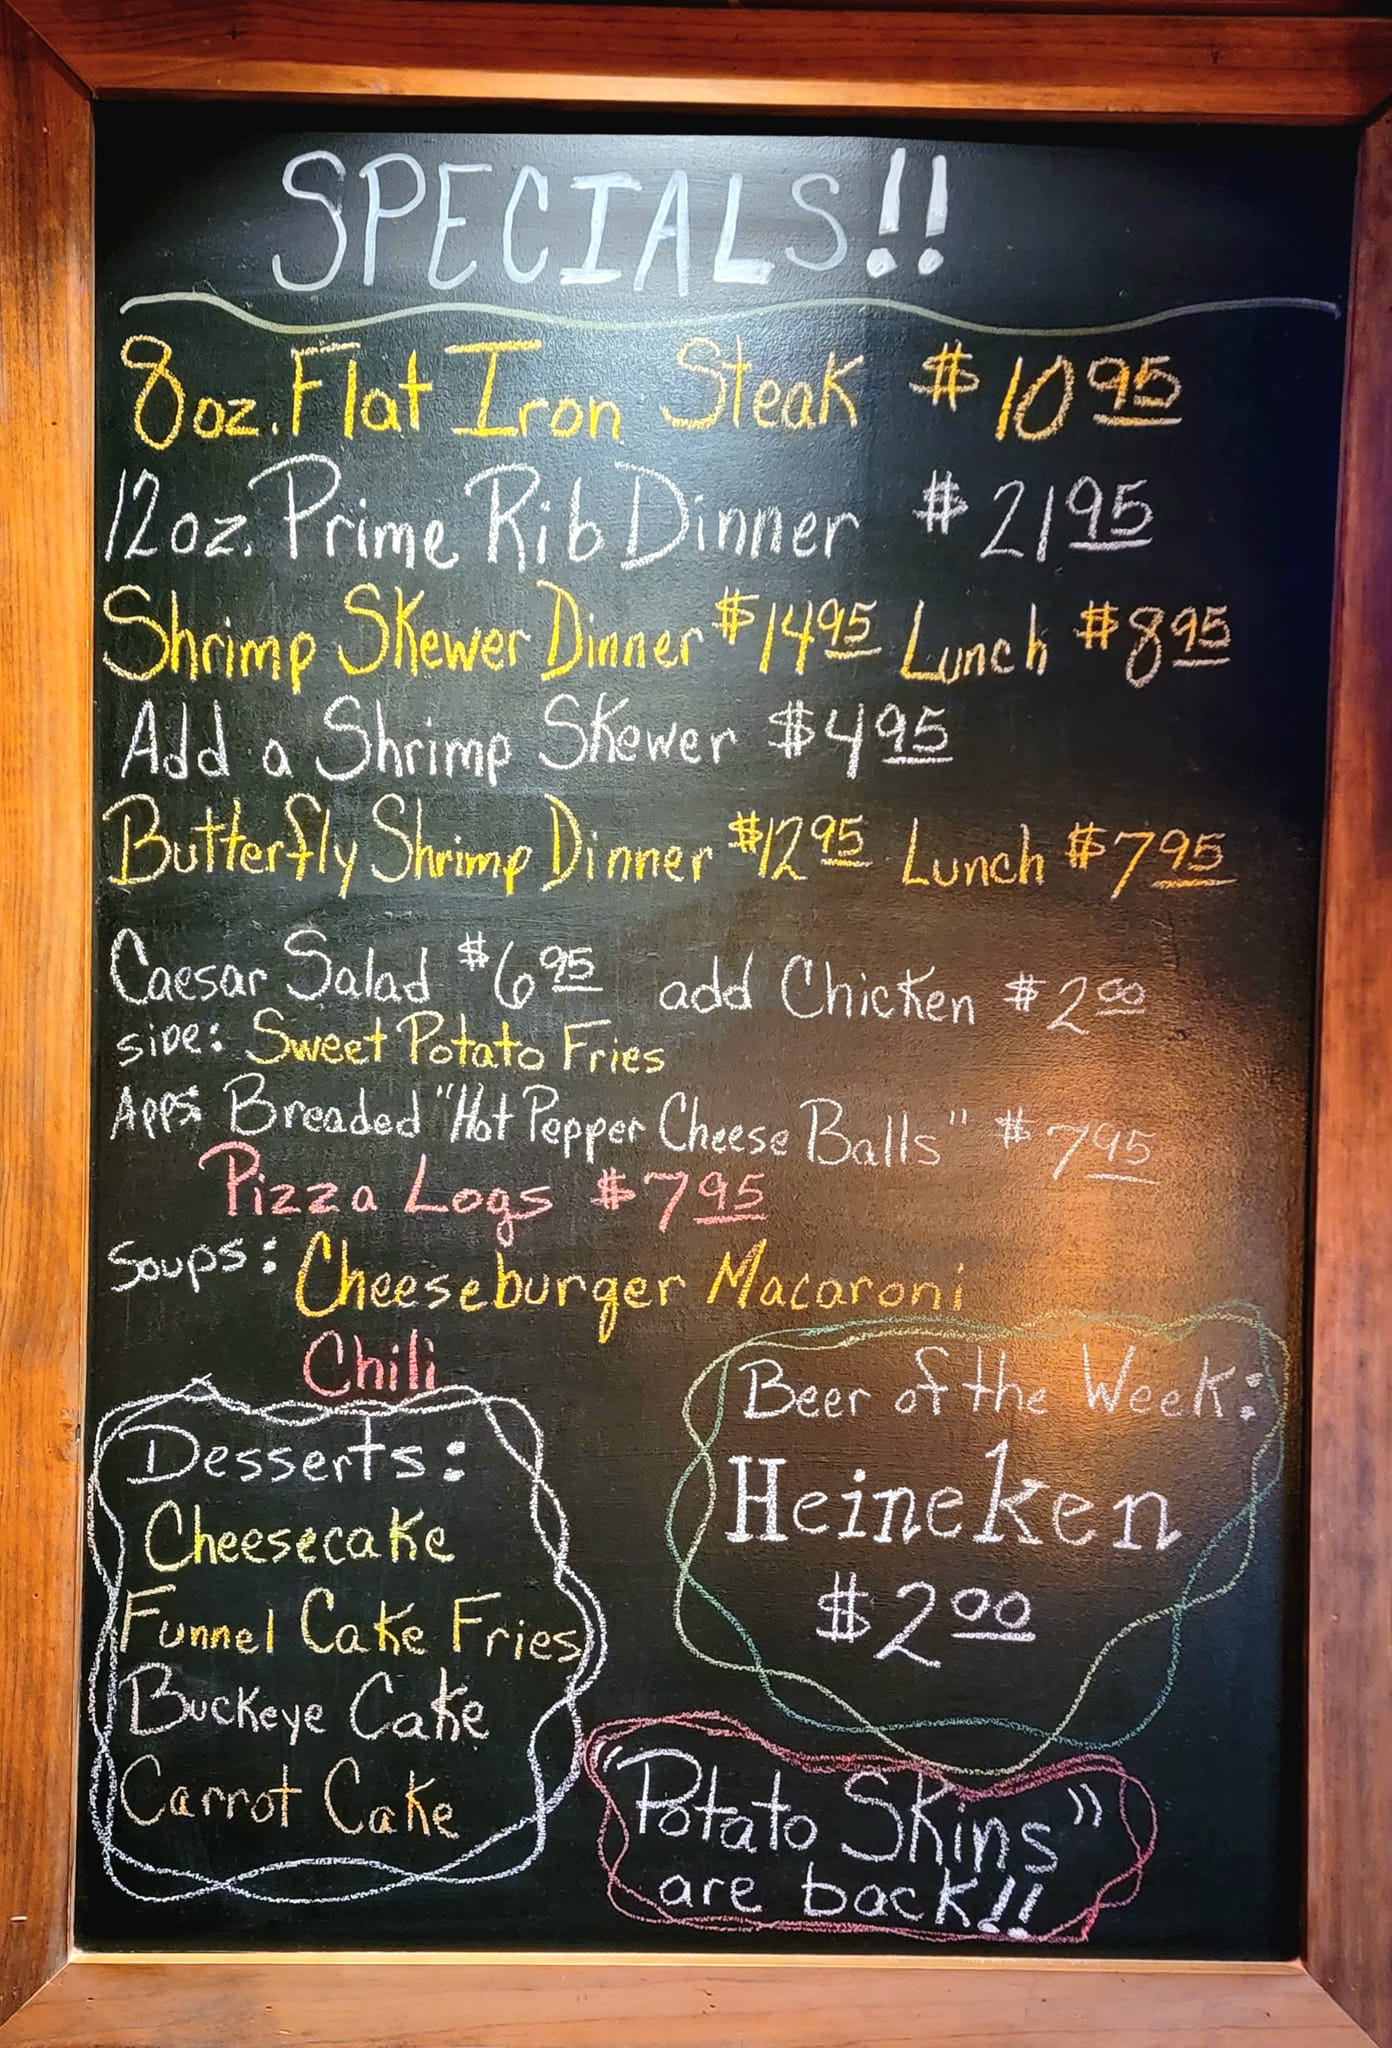 SPECIALS!!
8oz. Flat Iron Steak $10.95
12oz. Prime Rib Dinner $21.95
Shrimp Skewer Dinner $14.95 Lunch $8.95
Add a Shrimp Skewer $4.95
Butterfly Shrimp Dinner $12.95 Lunch $7.95
Caesar Salad $6.95 add Chicken $2.00
Side: Sweet Potato Fries
Apps: Breaded "Hot Pepper Cheese Balls" $7.95
Pizza Logs $7.95
Soups: Cheeseburger Macaroni
Chili
Desserts:
Cheesecake
Funnel Cake Fries
Buckeye Cake
Carrot Cake
Beer of the Week:
Heineken
$2.00
"Potato Skins"
are back!!